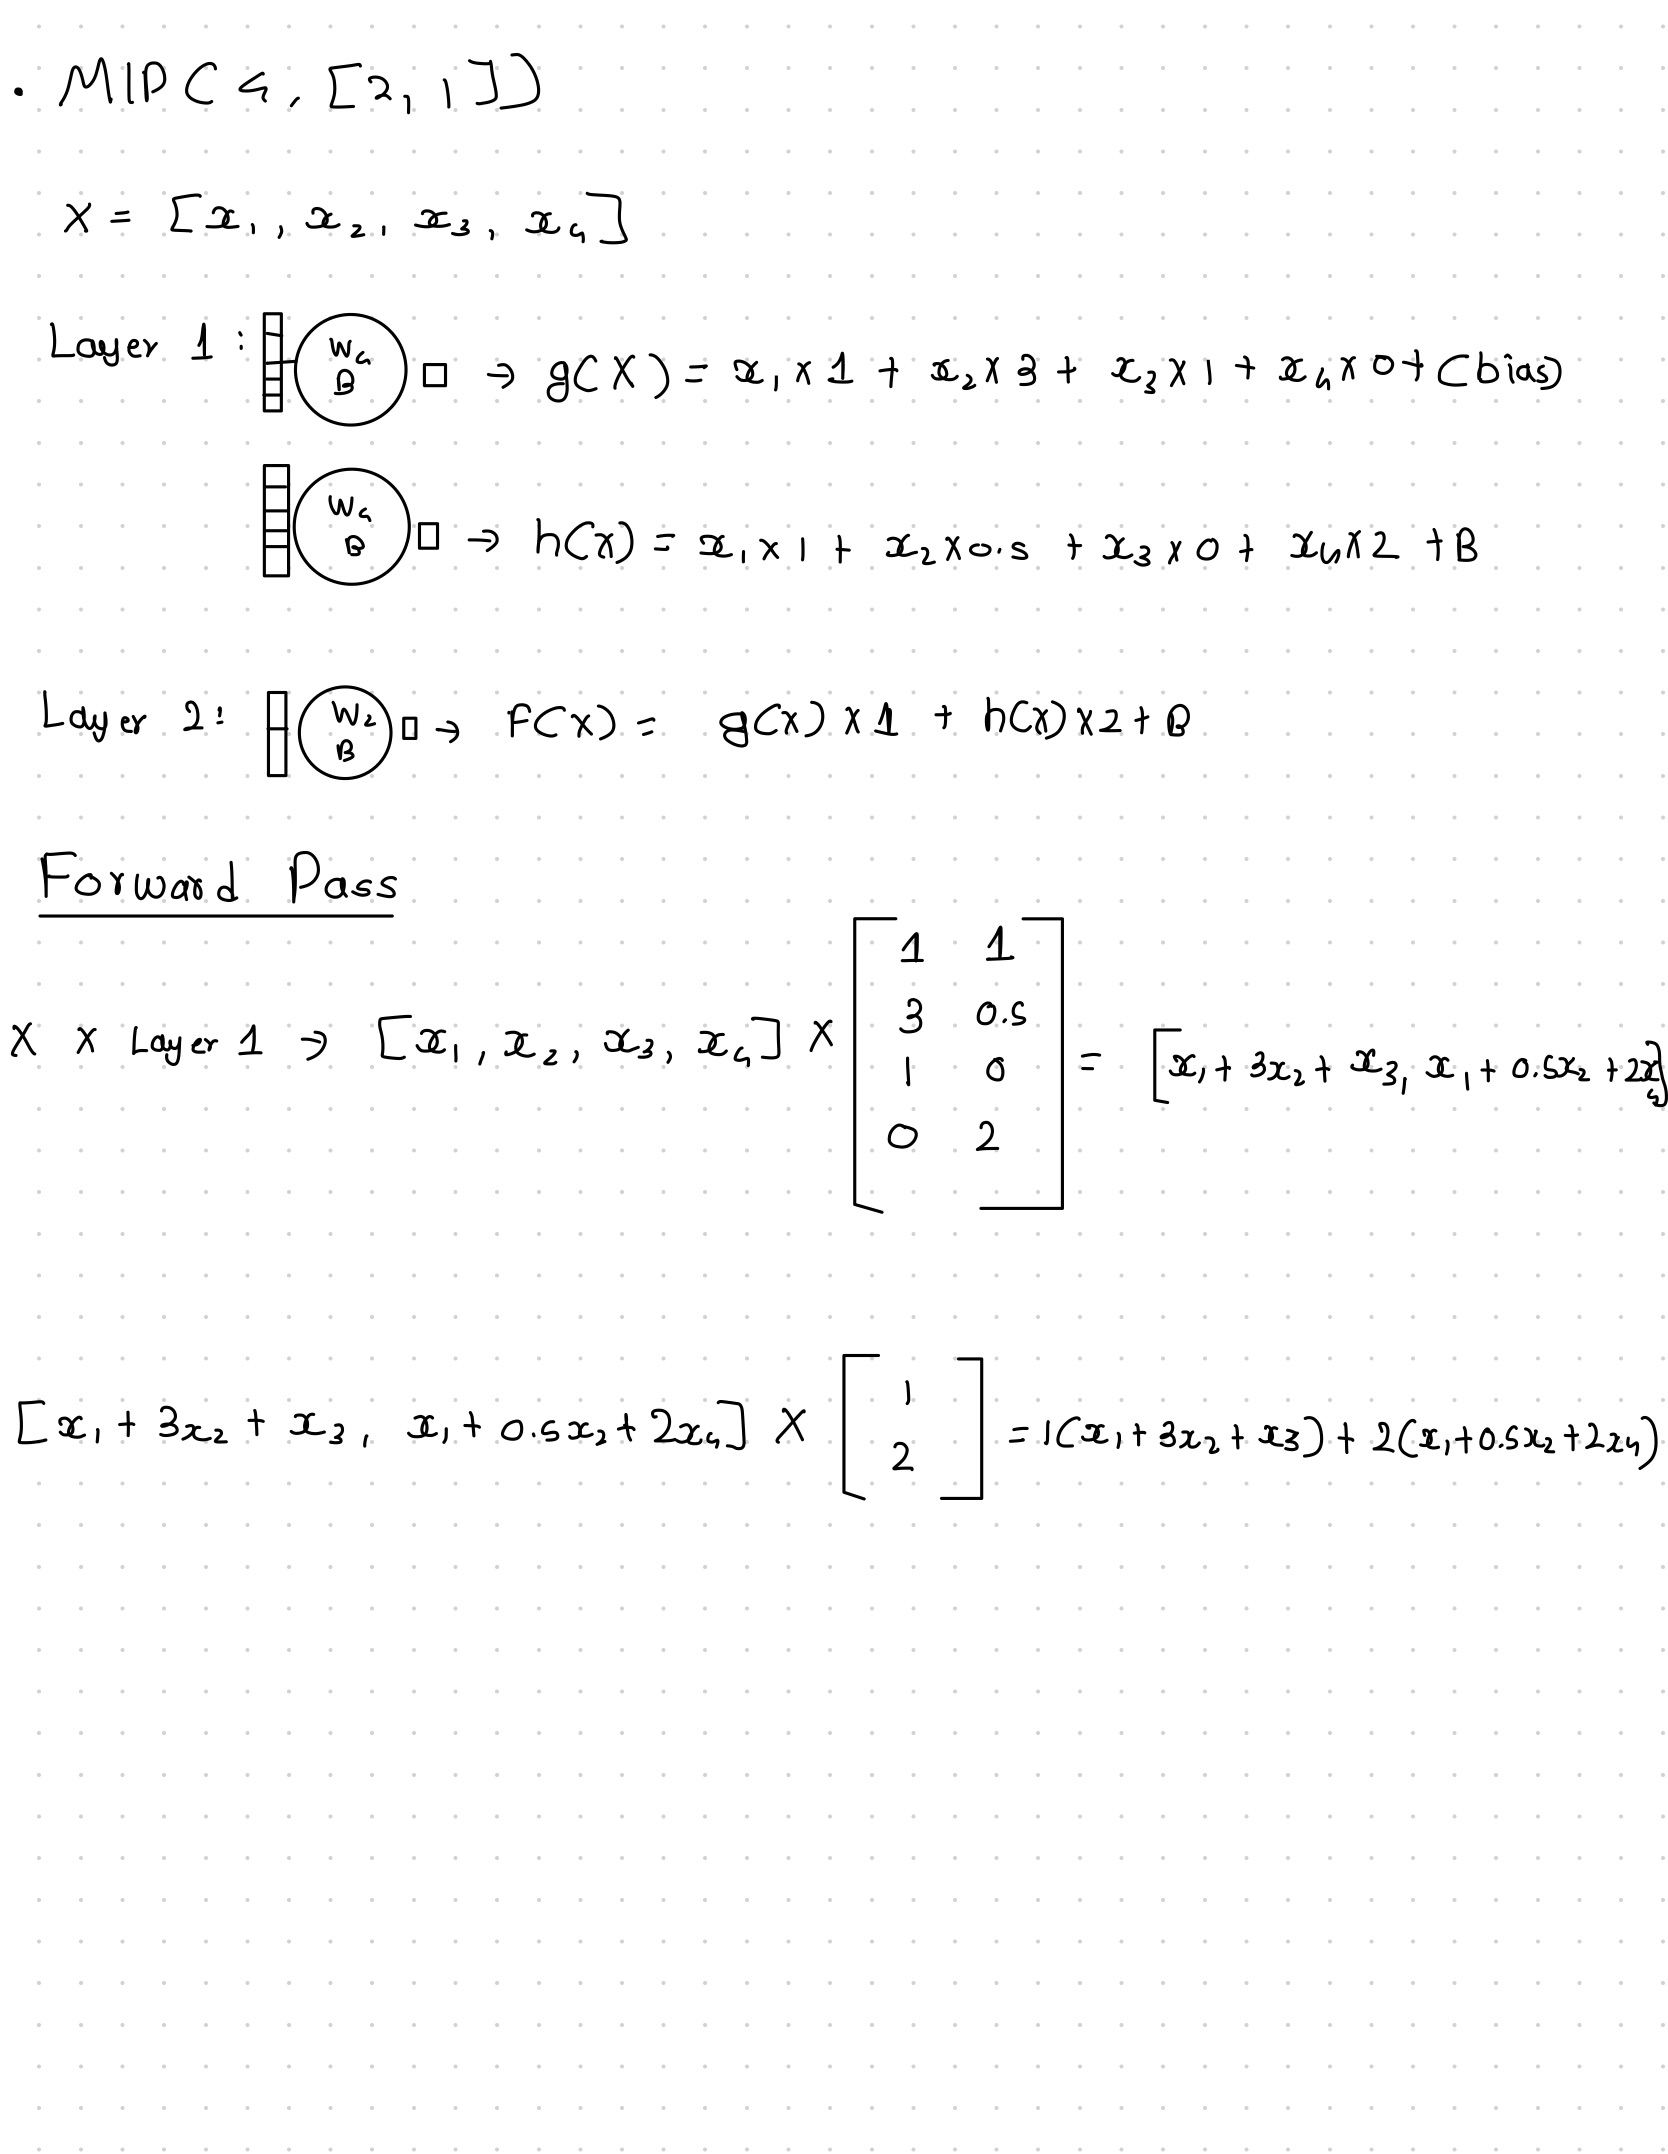 . MlP(4, [2, 1])
X = [x₁, x₂, x₃, x₄]
Layer 1 : W₄ B → g(X) = x₁ × 1 + x₂ × 3 + x₃ × 1 + x₄ × 0 + (bias)
W₄ B → h(x) = x₁ × 1 + x₂ × 0.5 + x₃ × 0 + x₄ × 2 + B
Layer 2: W₂ B → F(x) = g(x) × 1 + h(x) × 2 + B
Forward Pass
X × Layer 1 → [x₁, x₂, x₃, x₄] × [1 1; 3 0.5; 1 0; 0 2] = [x₁ + 3x₂ + x₃, x₁ + 0.5x₂ + 2x₄]
[x₁ + 3x₂ + x₃, x₁ + 0.5x₂ + 2x₄] × [1; 2] = 1(x₁ + 3x₂ + x3) + 2(x₁ + 0.5x₂ + 2x₄)